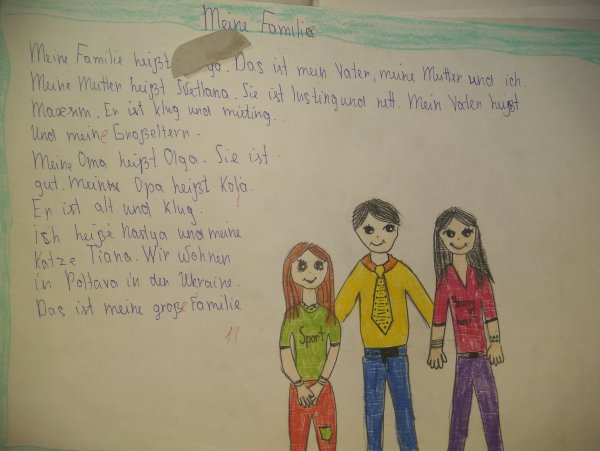 Meine Familie
Meine Familie heißt ga. Das ist mein Vater, meine Mutter und ich.
Meine Mutter heißt Svetlana. Sie ist lusting und nett. Mein Vater heißt
Maxsim. Er ist klug und mutting.
Und meine Großeltern.
Meine Oma heißt Olga. Sie ist
gut. Meine Opa heißt Kolja.
Er ist alt und klug.
ich heiße Nastya und meine
Katze Tiana. Wir wohnen
in Poltava in der Ukraine.
Das ist meine große Familie
11
Sport